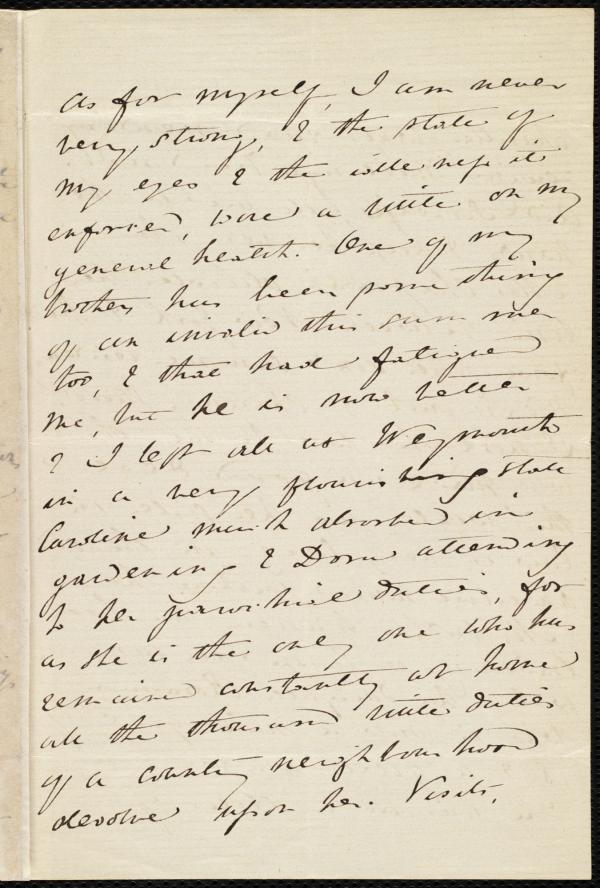 as for myself, I am never
very strong, & the state of
my eyes & the idleness it
enforced, wore a little on my
general health. One of my
brothers has been something
of an invalid this summer
too, & that had fatigued
me, but he is now better
& I left all at Weymouth
in a very flourishing state
Caroline much absorbed in
gardening & Dora attending
to her parochial duties, for
as she is the only one who has
remained constantly at home
all the thousand little duties
of a country neighbourhood
devolve upon her. Visits,